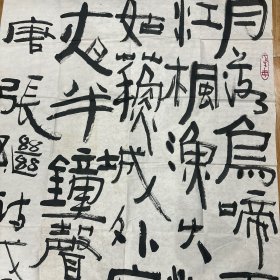 月落烏啼
江楓漁火
姑蘇城外
夜半鐘聲
唐張繼詩